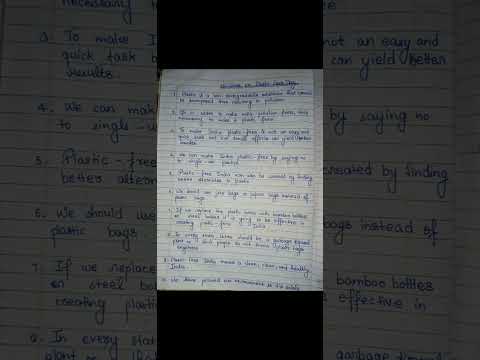 necessary to
3. To make I
quick task b
results.
4. We can mak
to single-u
5. Plastic-free
better altern
6. We should use
plastic bags.
7. If we replace
or steel bo
creating plastic
8. In every state
plant so that
not an easy and
can yield better
by saying no
created by finding
bags instead of
bamboo bottles
is effective in
garbage
1. Plastic is a non-biodegradable substance that cannot
be decomposed thus resulting in pollution.
2. In order to make India pollution free,
necessary to make it plastic free.
3. To make India plastic free is not an easy and
quick task but our small efforts can yield better
results.
4. We can make India plastic-free by saying no
to single-use plastic.
5. Plastic-free India can also be created by finding
better alternatives to plastic.
6. We should use jute bags or paper bags instead of
plastic bags.
7. If we replace the plastic water with bamboo bottles
or steel bottles it will be effective in
creating plastic-free India
8. In every state there should be a garbage
plant so that people do not throw plastic bags
anywhere
9. Plastic free India means a clean, green, and healthy
India.
10. We should